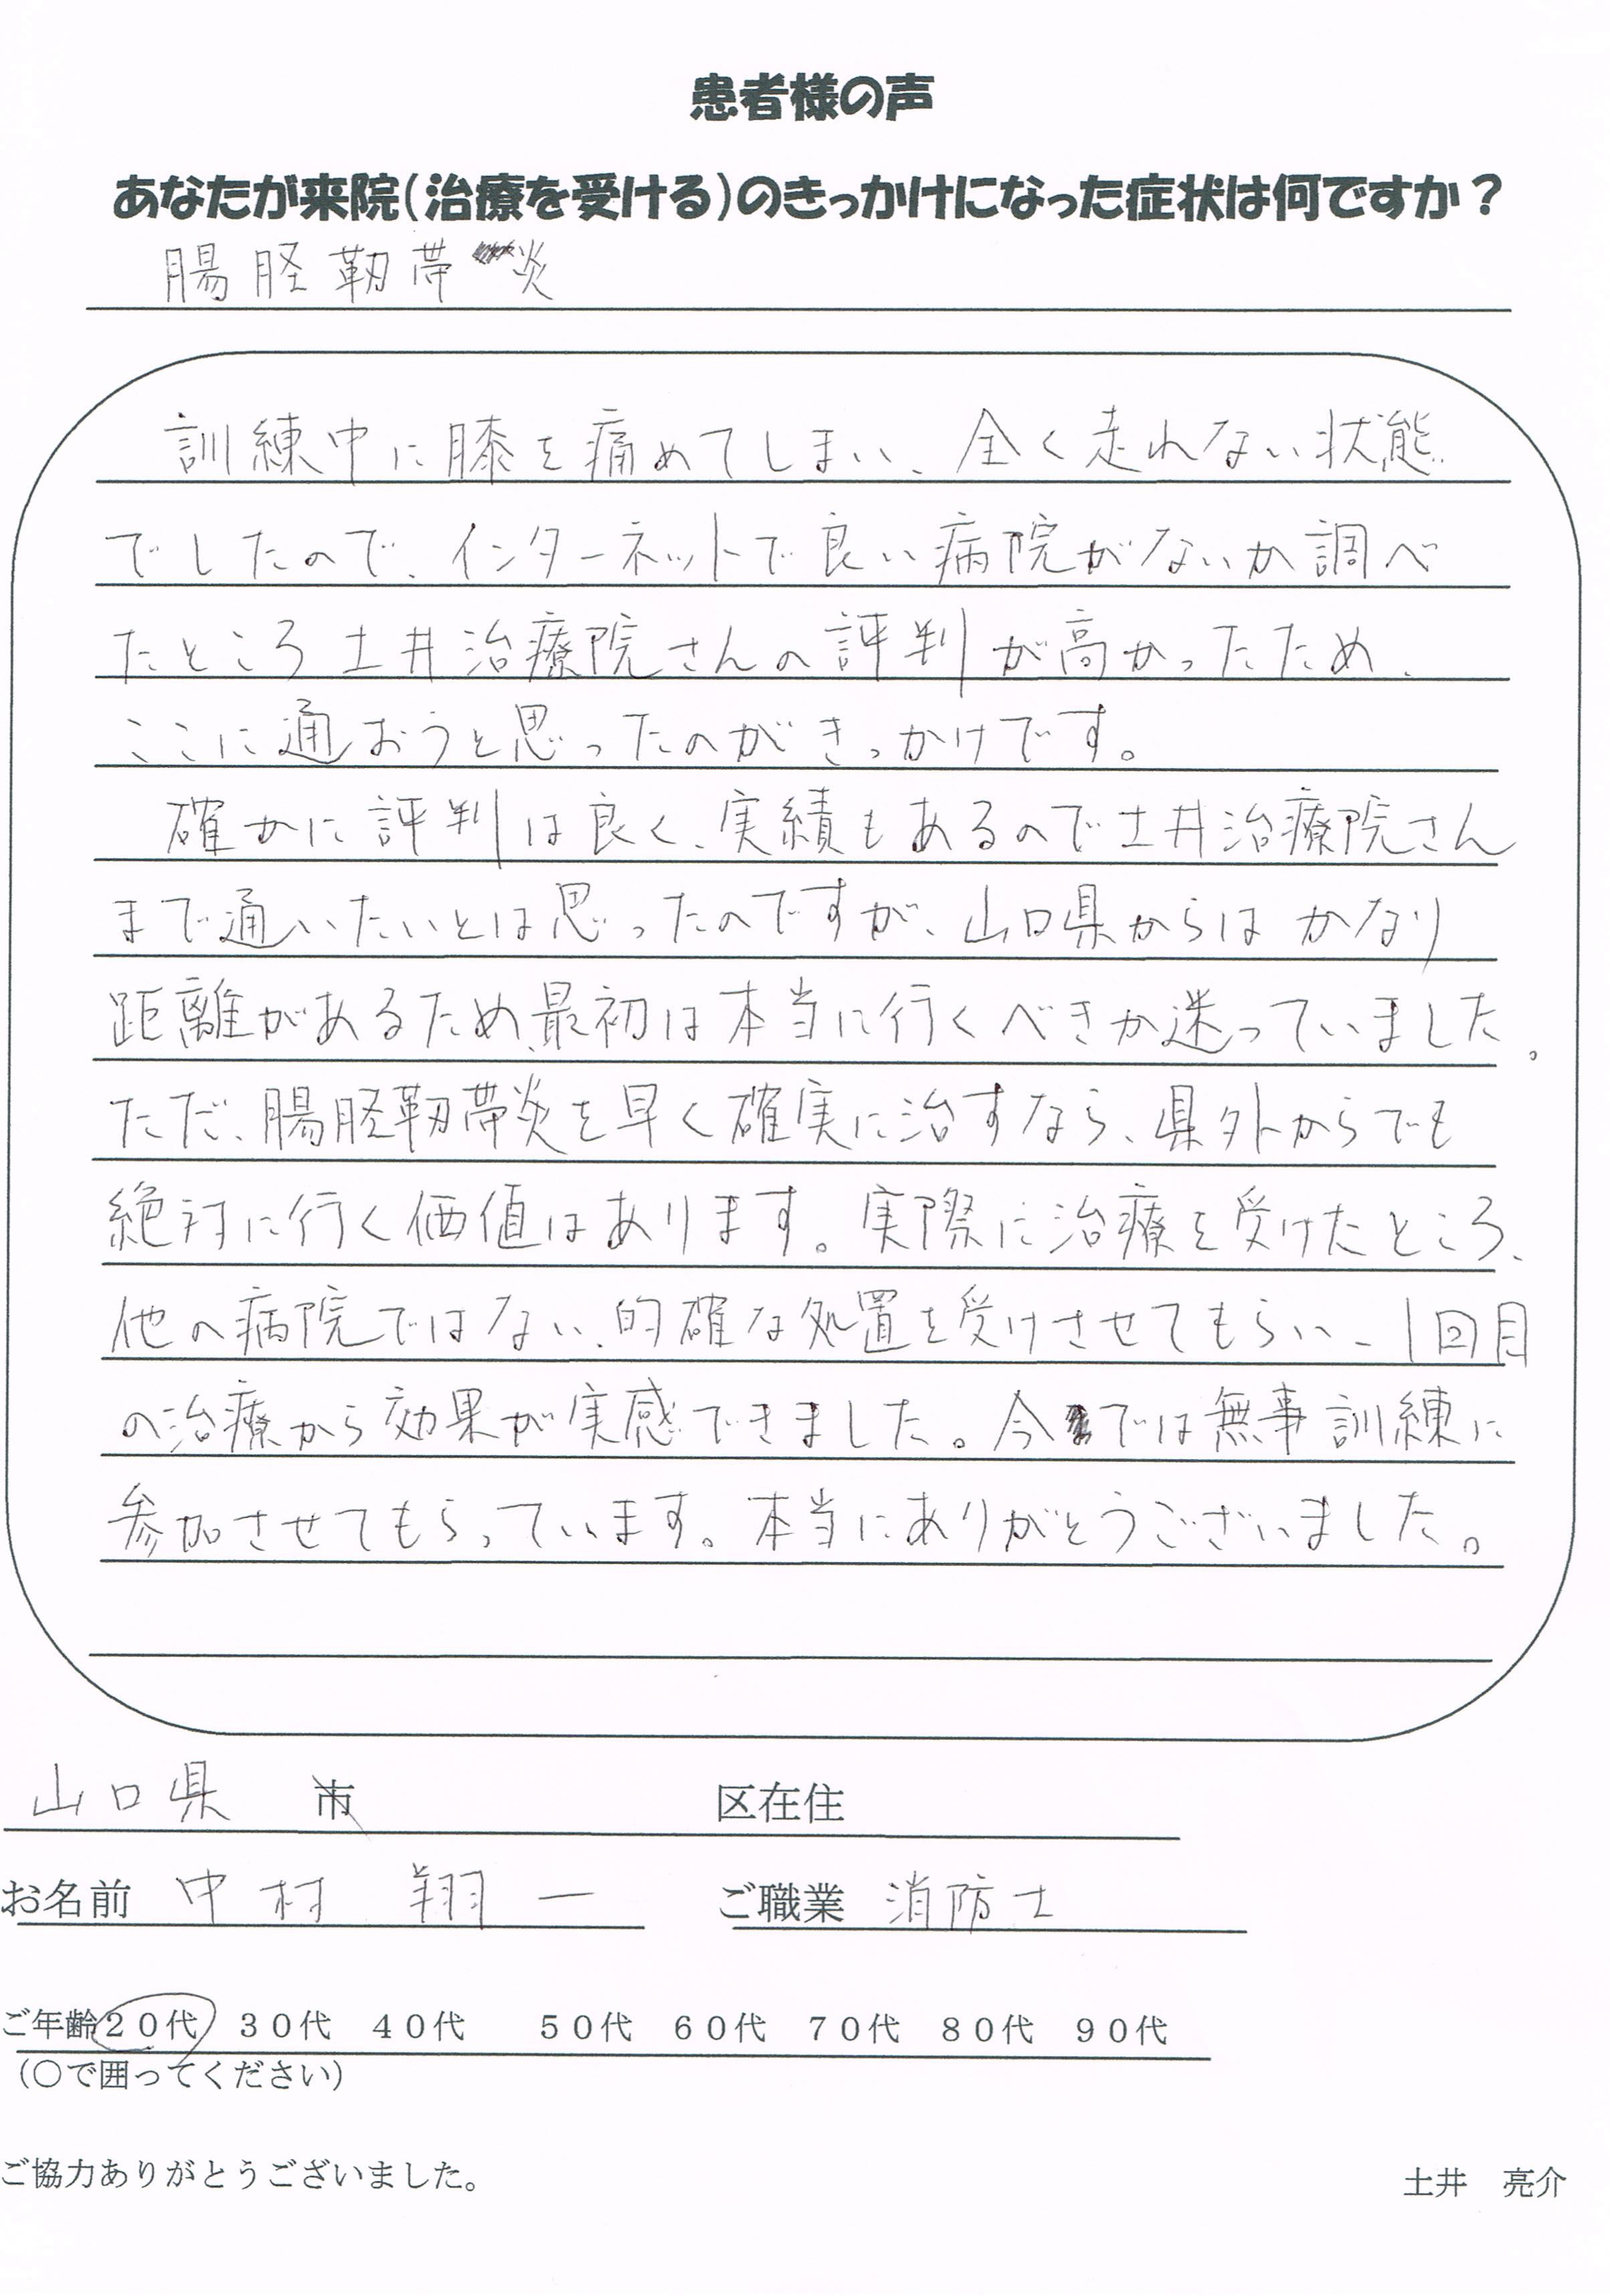 患者様の声
あなたが来院(治療を受ける)のきっかけになった症状は何ですか？
腸脛靭帯炎
訓練中に膝を痛めてしまい、全く走れない状態
でしたので、インターネットで良い病院がないか調べ
たところ土井治療院さんの評判が高かったため、
ここに通おうと思ったのがきっかけです。
確かに評判は良く、実績もあるので土井治療院さん
まで通いたいとは思ったのですが、山口県からはかなり
距離があるため、最初は本当に行くべきか迷っていました。
ただ、腸脛靭帯炎を早く確実に治すなら、県外からでも
絶対に行く価値はあります。実際に治療を受けたところ、
他の病院ではない、的確な処置を受けさせてもらい、1回目
の治療から効果が実感できました。今では無事訓練に
参加させてもらっています。本当にありがとうございました。
山口県 市 区在住
お名前 中村 翔一 ご職業 消防士
ご年齢 20代 30代 40代 50代 60代 70代 80代 90代
(○で囲ってください)
ご協力ありがとうございました。 土井 亮介